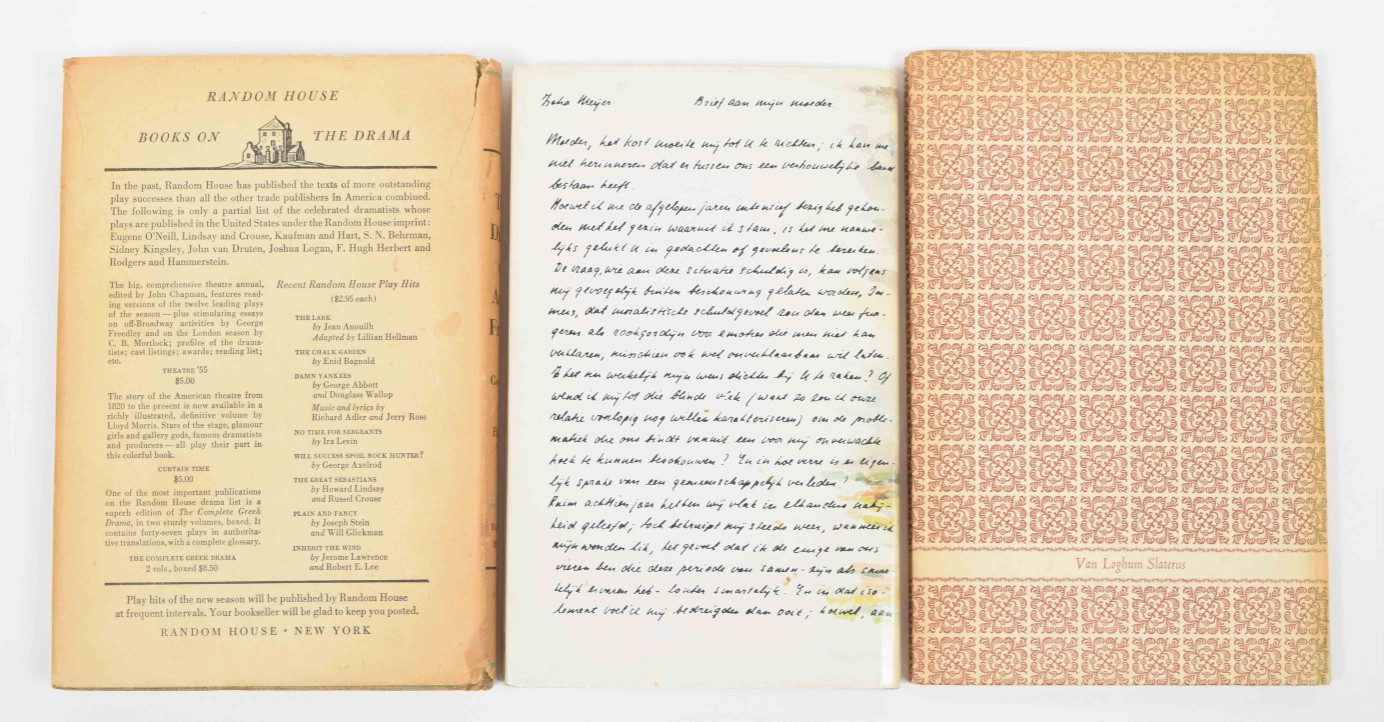 RANDOM HOUSE
BOOKS ON THE DRAMA
In the past, Random House has published the texts of more outstanding
play successes than all the other trade publishers in America combined.
The following is only a partial list of the celebrated dramatists whose
plays are published in the United States under the Random House imprint:
Eugene O'Neill, Lindsay and Crouse, Kaufman and Hart, S. N. Behrman,
Sidney Kingsley, John van Druten, Joshua Logan, F. Hugh Herbert and
Rodgers and Hammerstein.
The big, comprehensive theatre annual,
edited by John Chapman, features read-
ing versions of the twelve leading plays
of the season — plus stimulating essays
on off-Broadway activities by George
Freedley and on the London season by
C. B. Mortlock; profiles of the drama-
tists; cast listings; awards; reading list;
etc.
THEATRE '55
$5.00
The story of the American theatre from
1820 to the present is now available in a
richly illustrated, definitive volume by
Lloyd Morris. Stars of the stage, glamour
girls and gallery gods, famous dramatists
and producers — all play their part in
this colorful book.
CURTAIN TIME
$5.00
One of the most important publications
on the Random House drama list is a
superb edition of The Complete Greek
Drama, in two sturdy volumes, boxed. It
contains forty-seven plays in authorita-
tive translations, with a complete glossary.
THE COMPLETE GREEK DRAMA
2 vols., boxed $8.50
Recent Random House Play Hits
($2.95 each)
THE LARK
by Jean Anouilh
Adapted by Lillian Hellman
THE CHALK GARDEN
by Enid Bagnold
DAMN YANKEES
by George Abbott
and Douglass Wallop
Music and lyrics by
Richard Adler and Jerry Ross
NO TIME FOR SERGEANTS
by Ira Levin
WILL SUCCESS SPOIL ROCK HUNTER?
by George Axelrod
THE GREAT SEBASTIANS
by Howard Lindsay
and Russel Crouse
PLAIN AND FANCY
by Joseph Stein
and Will Glickman
INHERIT THE WIND
by Jerome Lawrence
and Robert E. Lee
Play hits of the new season will be published by Random House
at frequent intervals. Your bookseller will be glad to keep you posted.
RANDOM HOUSE • NEW YORK
Ischa Meijer Brief aan mijn moeder
Moeder, het kost moeite mij tot U te richten; ik kan me
niet herinneren dat er tussen ons een vertrouwelijke band
bestaan heeft.
Hoewel ik me de afgelopen jaren intensief bezig heb gehou-
den met het gezin waaruit ik stam, is het me nauwe-
lijks gelukt U in gedachten of gevoelens te bereiken.
De vraag, wie aan deze situatie schuldig is, kan volgens
mij gevoegelijk buiten beschouwing gelaten worden. Im-
mers, dat moralistische schuldgevoel zou dan weer fun-
geren als rookgordijn voor emoties die men niet kan
verklaren, misschien ook wel onverklaarbaar wil laten.
Is het nu werkelijk mijn wens dichter bij U te raken? Of
wend ik mij tot die blinde vlek (want zo zou ik onze
relatie voorlopig nog willen karakteriseren) om de proble-
matiek die ons bindt vanuit een voor mij onverwachte
hoek te kunnen beschouwen? En in hoeverre is er eigen-
lijk sprake van een gemeenschappelijk verleden?
Ruim achttien jaar hebben wij vlak in elkanders nabij-
heid geleefd; toch bekruipt mij steeds weer, wanneer ik
mijn wonden lik, het gevoel dat ik de enige van ons
vieren ben die deze periode van samen-zijn als smar-
telijk ervaren heb - louter smartelijk. En in dat iso-
lement voel ik mij bedreigder dan ooit; hoewel, aan
Van Loghum Slaterus